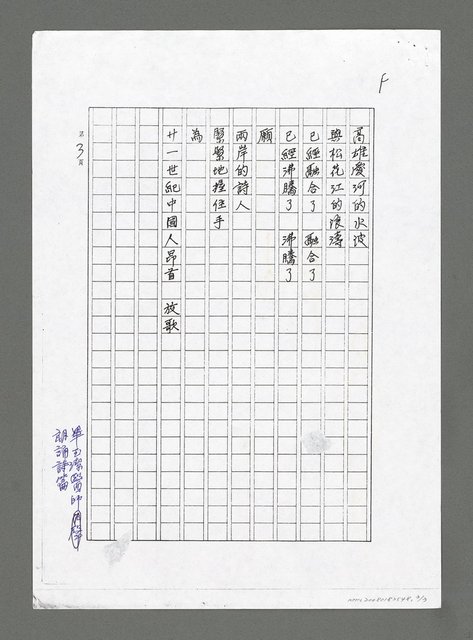 高雄愛河的水波
與松花江的浪濤
已經融合了　融合了
已經沸騰了　沸騰了
願
兩岸的詩人
緊緊地握住手
為
廿一世紀中國人昂首　放歌
第3頁
朗誦詩篇